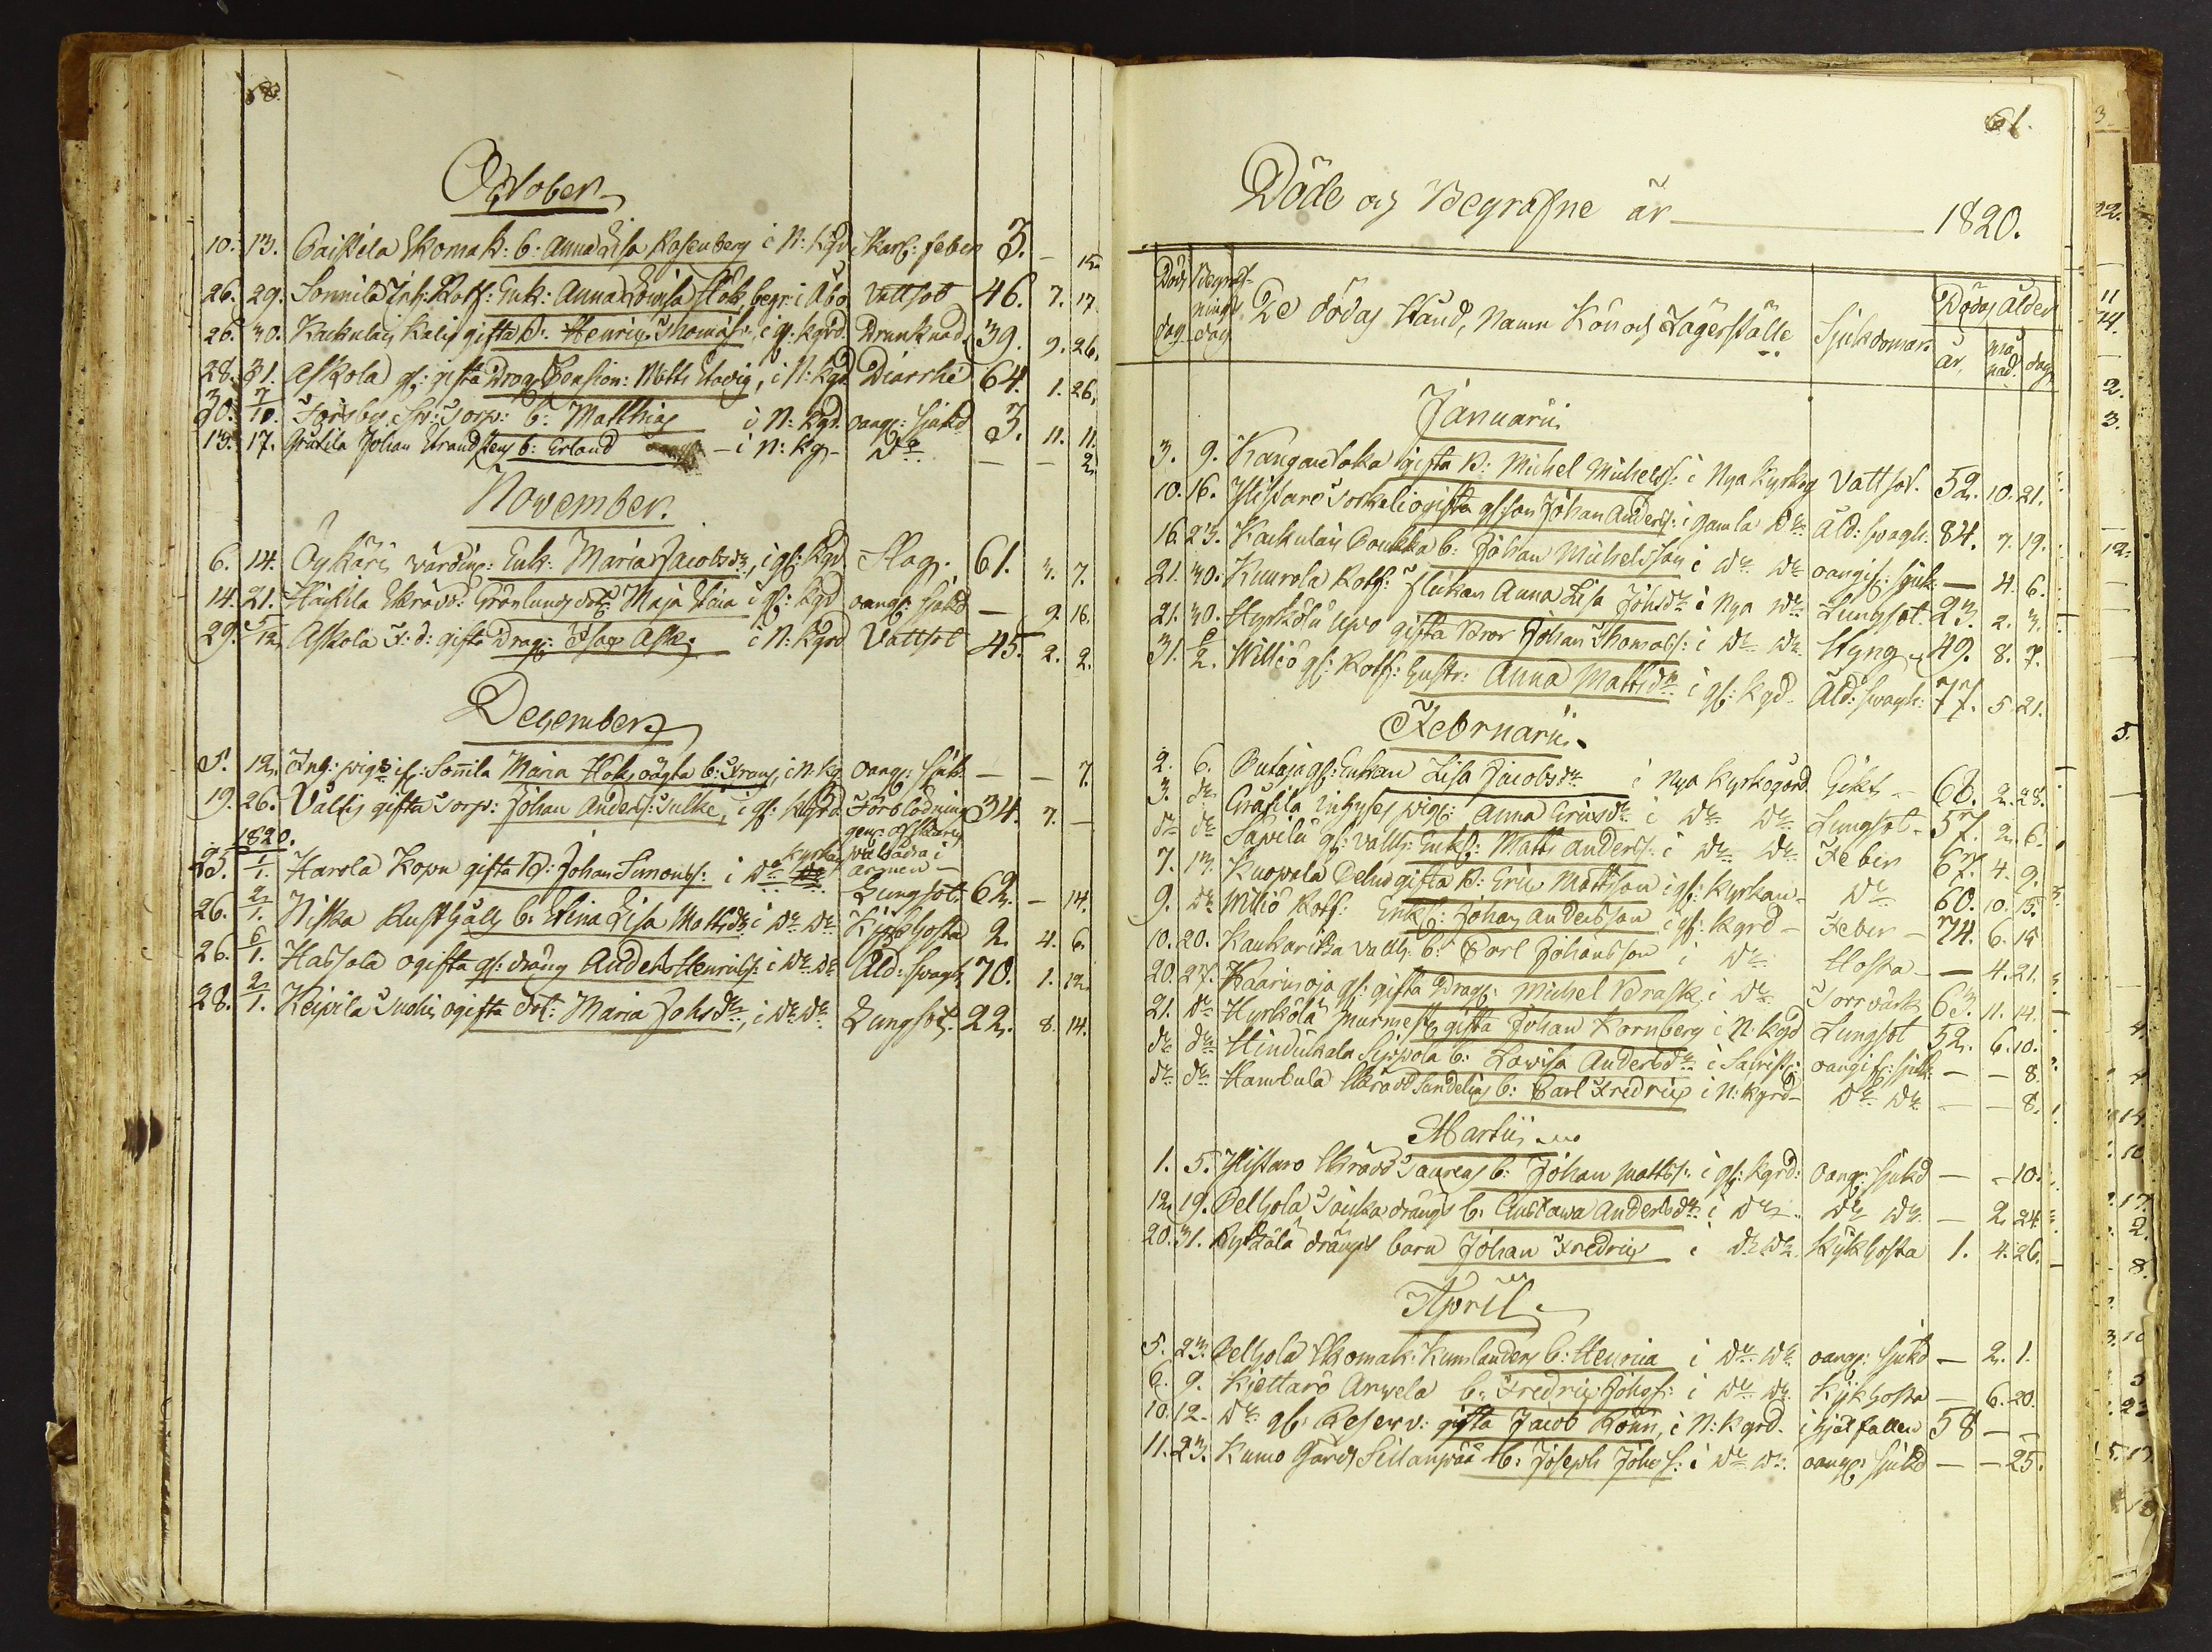 October
10. 13. Paistila Skomak: b: Anna Lisa Rosenberg i N: kgd Skarl: feber 3. – 15.
26. 29. Sonnila Inh: Rotf: Enk: Anna Lowisa Hök, begr: i Åbo Vattsot 46. 7. 17.
26. 30. Kaukulais Kalis gifta B: Henric Thomass: i gl: kgrd. Drunknad 39. 9. 26.
28. 31. Askola gl: gifta Drag: Pension: Matts Stadig, i N: kgd Diarrhé 64. 1. 26.
30. 7/11. Torp: b: Matthias i N: kgd. oang: sjukd 3. 11. 11.
13. 17. Gräsila Johan Strandstens b: Erland i N: kg. Do – – 2.
November.
6. 14. Öykäri värdin: Enk: Maria Jacobsdr, i gl: kgd Slag. 61. 3. 7.
14. 21. Häikilä Skrädd: Grönlunds dotr Maja Stina i gl: kgd oang: sjukd – 9. 16.
29. 5/12. Askola F: d: gifta Drag: Isac Ask i N: kgrd Vattsot 45. 2. 2.
December
5. 12. Inh: pig: Sonnila Maria Hök, oägta b: Frans, i N: kg oang: sjukd – – 7.
19. 26. Valtis gifta Torp: Johan Anders: Sulke, i gl: kgrd. Förblödning 34. 7. –
1820. genom afskuren
kyrkan pulsådra i
25. 1/1. Harola Kopu gifta B: Johan Simonss: i Do armen – Lungsot. 62. – 14.
26. 2/1. Niska Rusthåll: b: Stina Lisa Mattsdr i Do Do Kikhosta 2. 4. 6.
26. 6/1. Hassola ogifta gl: dräng Anders Henricss: i Do Do Åld: svagh. 70. 1. 12.
28. 2/1. Keipilä Juohi ogifta dot: Maria Johsdr, i Do Do Lungsot. 22. 8. 14.
61.
Döde och Begrafne år 1820.
Döds dag Begrafnings dag De dödas Stånd, Namn Kön och Lägerställe Sjukdomar Dödas ålder
år, månad. dag
Januarii
3. 9. Kangantaka gifta B: Michel Michelss: i Nya kyrkog Vattsot. 52. 10. 21.
10. 16. Ylistaro Torkeli ogifta gl: son Johan Anderss: i Gamla Do Åld: svagh. 84. 7. 19.
16. 23. Kaukulais Poukka b: Johan Michelsson i Do Do oangif: sjuk: – 4. 6.
21. 30. Kuurola Rotf: flickan Anna Lisa Johsdr i Nya Do Lungsot. 23. 2. 3.
21. 30. Hyrkölä Upo gifta Bror Johan Thomass: i Do Do Styng 49. 8. 7.
31. 6/2. Williö gl: Rotf: Hustr: Anna Mattsdr i gl: kgd. Åld: svagh: 77. 5. 21.
Februarii.
2. 6. Putaja gl: Enkan Lisa Jacobsdr i Nya kyrkogård Gikt 68. 2. 28.
3. do. Gräsila Inhyses pig: Anna Ericsdr i Do Do Lungsot. 57. 2. 6.
do do Säpilä gl: Vallh: Enkl: Matts Anderss: i Do Do Feber 67. 4. 9.
7. 13. Kuowola Pehu gifta B: Eric Mattsson i gl: kyrkan – Do 60. 10. 15.
9. do. Williö Rotf: Enkl: Johan Andersson i gl: kgrd – Feber – 74. 6. 15
10. 20. Kaukaritza Vallh: b: Carl Johansson i Do Hosta – – 4. 21.
20. 27. Kaarinoja gl: gifta Drag: Michel Brask i Do Torrvärk 63. 11. 14.
21. do Hyrkölä Murmest: gifta Johan Kornberg i N: kgd Lungsot 52. 6. 10.
do do Hindukala Sippola b: Lowisa Andersdr i oangif: sjukd – – 8.
do do Hambula Skrädd Sandelius b: Carl Fredric i N: kgrd – Do Do – – 8.
Martii
1. 5. Ylistaro Skrädd Saurens b: Johan Mattss: i gl: kgrd: oang: sjukd – – 10.
12. 19. Pelhola Touka drängs b: Gustawa Andersdr i Do Do Do – 2. 24.
20. 31. drängs barn Johan Fredric i Do Do. Kikhosta 1. 4. 26.
April
5. 23. Pelhola Skomak: Kumlanders b: Henrica i Do Do oang: sjukd – 2. 1.
6. 9. Kiettarö Anwela b: Fredric Johss: i Do Do Kikhosta – 6. 20.
10. 12. Do gl: Reserv: gifta Jacob Rönn, i N: kgrd. ihjälfallen 58 – –
11. 23. Kumo Gårds Sillanpää b: Joseph Johss: i Do Do. oang: sjukd – – 25.